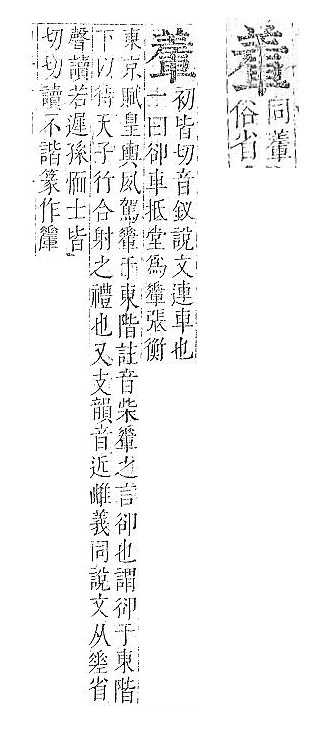 同䡨
俗省
初皆切音釵說文連車也
一曰卻車抵堂為䡨張衡
東京賦皇輿夙駕䡨于東階註音柴䡨之言卻也謂卻于東階
下以待天子行合射之禮也又支韻音近雌義同說文从差省
聲讀若遲孫愐士皆
切切讀不諧篆作